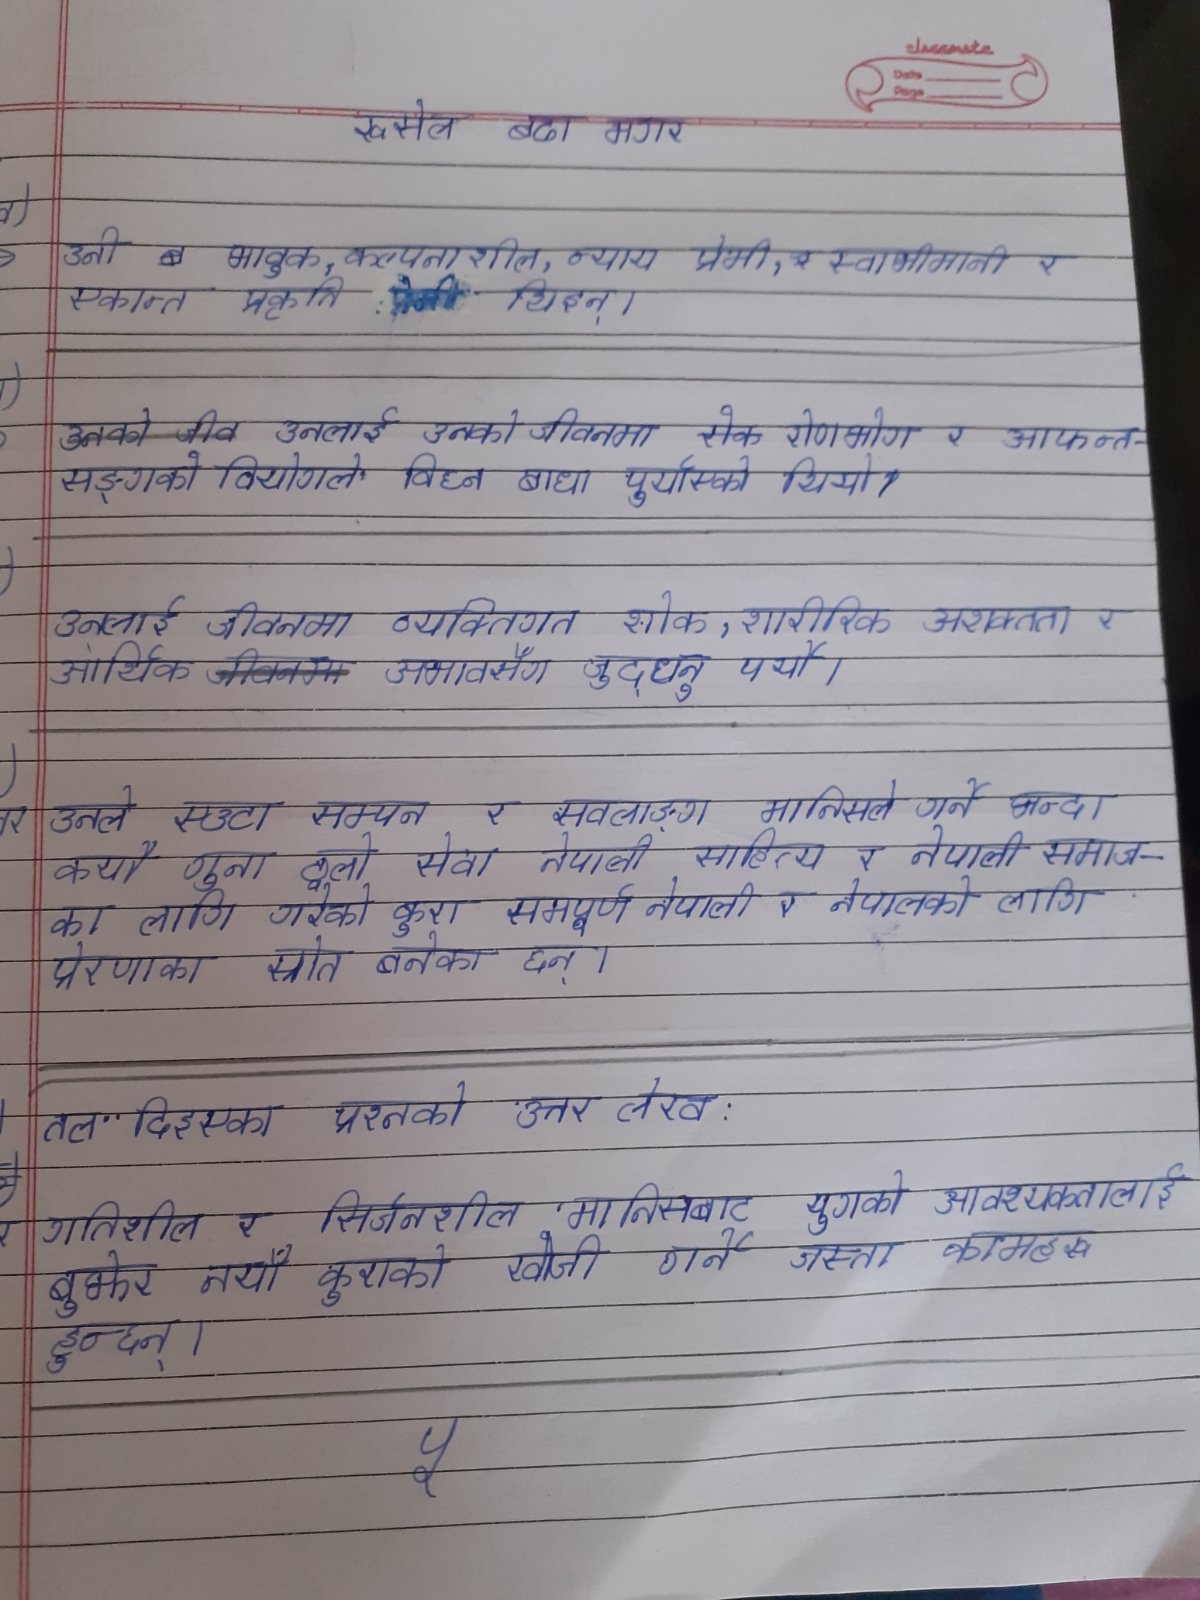 classmate
Date
Page
रुसेल बढा मगर
उनी भावुक, कल्पनाशील, न्याय प्रेमी, र स्वाभीमानी र
एकान्त प्रकृति थिइन्।
उनको जीव उनलाई उनको जीवनमा रोक रोणभोग र आफन्त-
सङ्गको वियोगले विघ्न बाधा पुर्याएको थियो।
उनलाई जीवनमा व्यक्तिगत शोक, शारीरिक अशक्तता र
आर्थिक जीवनमा अभावसँग जुद्धनु पर्यो।
उनले एउटा सम्पन र सवलाङ्ग मानिसले गर्ने भन्दा
कयौ गुना ठूलो सेवा नेपाली साहित्य र नेपाली समाज-
का लागि गरेको कुरा सम्पूर्ण नेपाली र नेपालको लागि
प्रेरणाका स्रोत बनेका छन्।
तल दिइएका प्रश्नको उत्तर लेख:
गतिशील र सिर्जनशील मानिसबाट युगको आवश्यकतालाई
बुझेर नयाँ कुराको खोजी गर्ने जस्ता कामहरु
हुन्छन्।
५